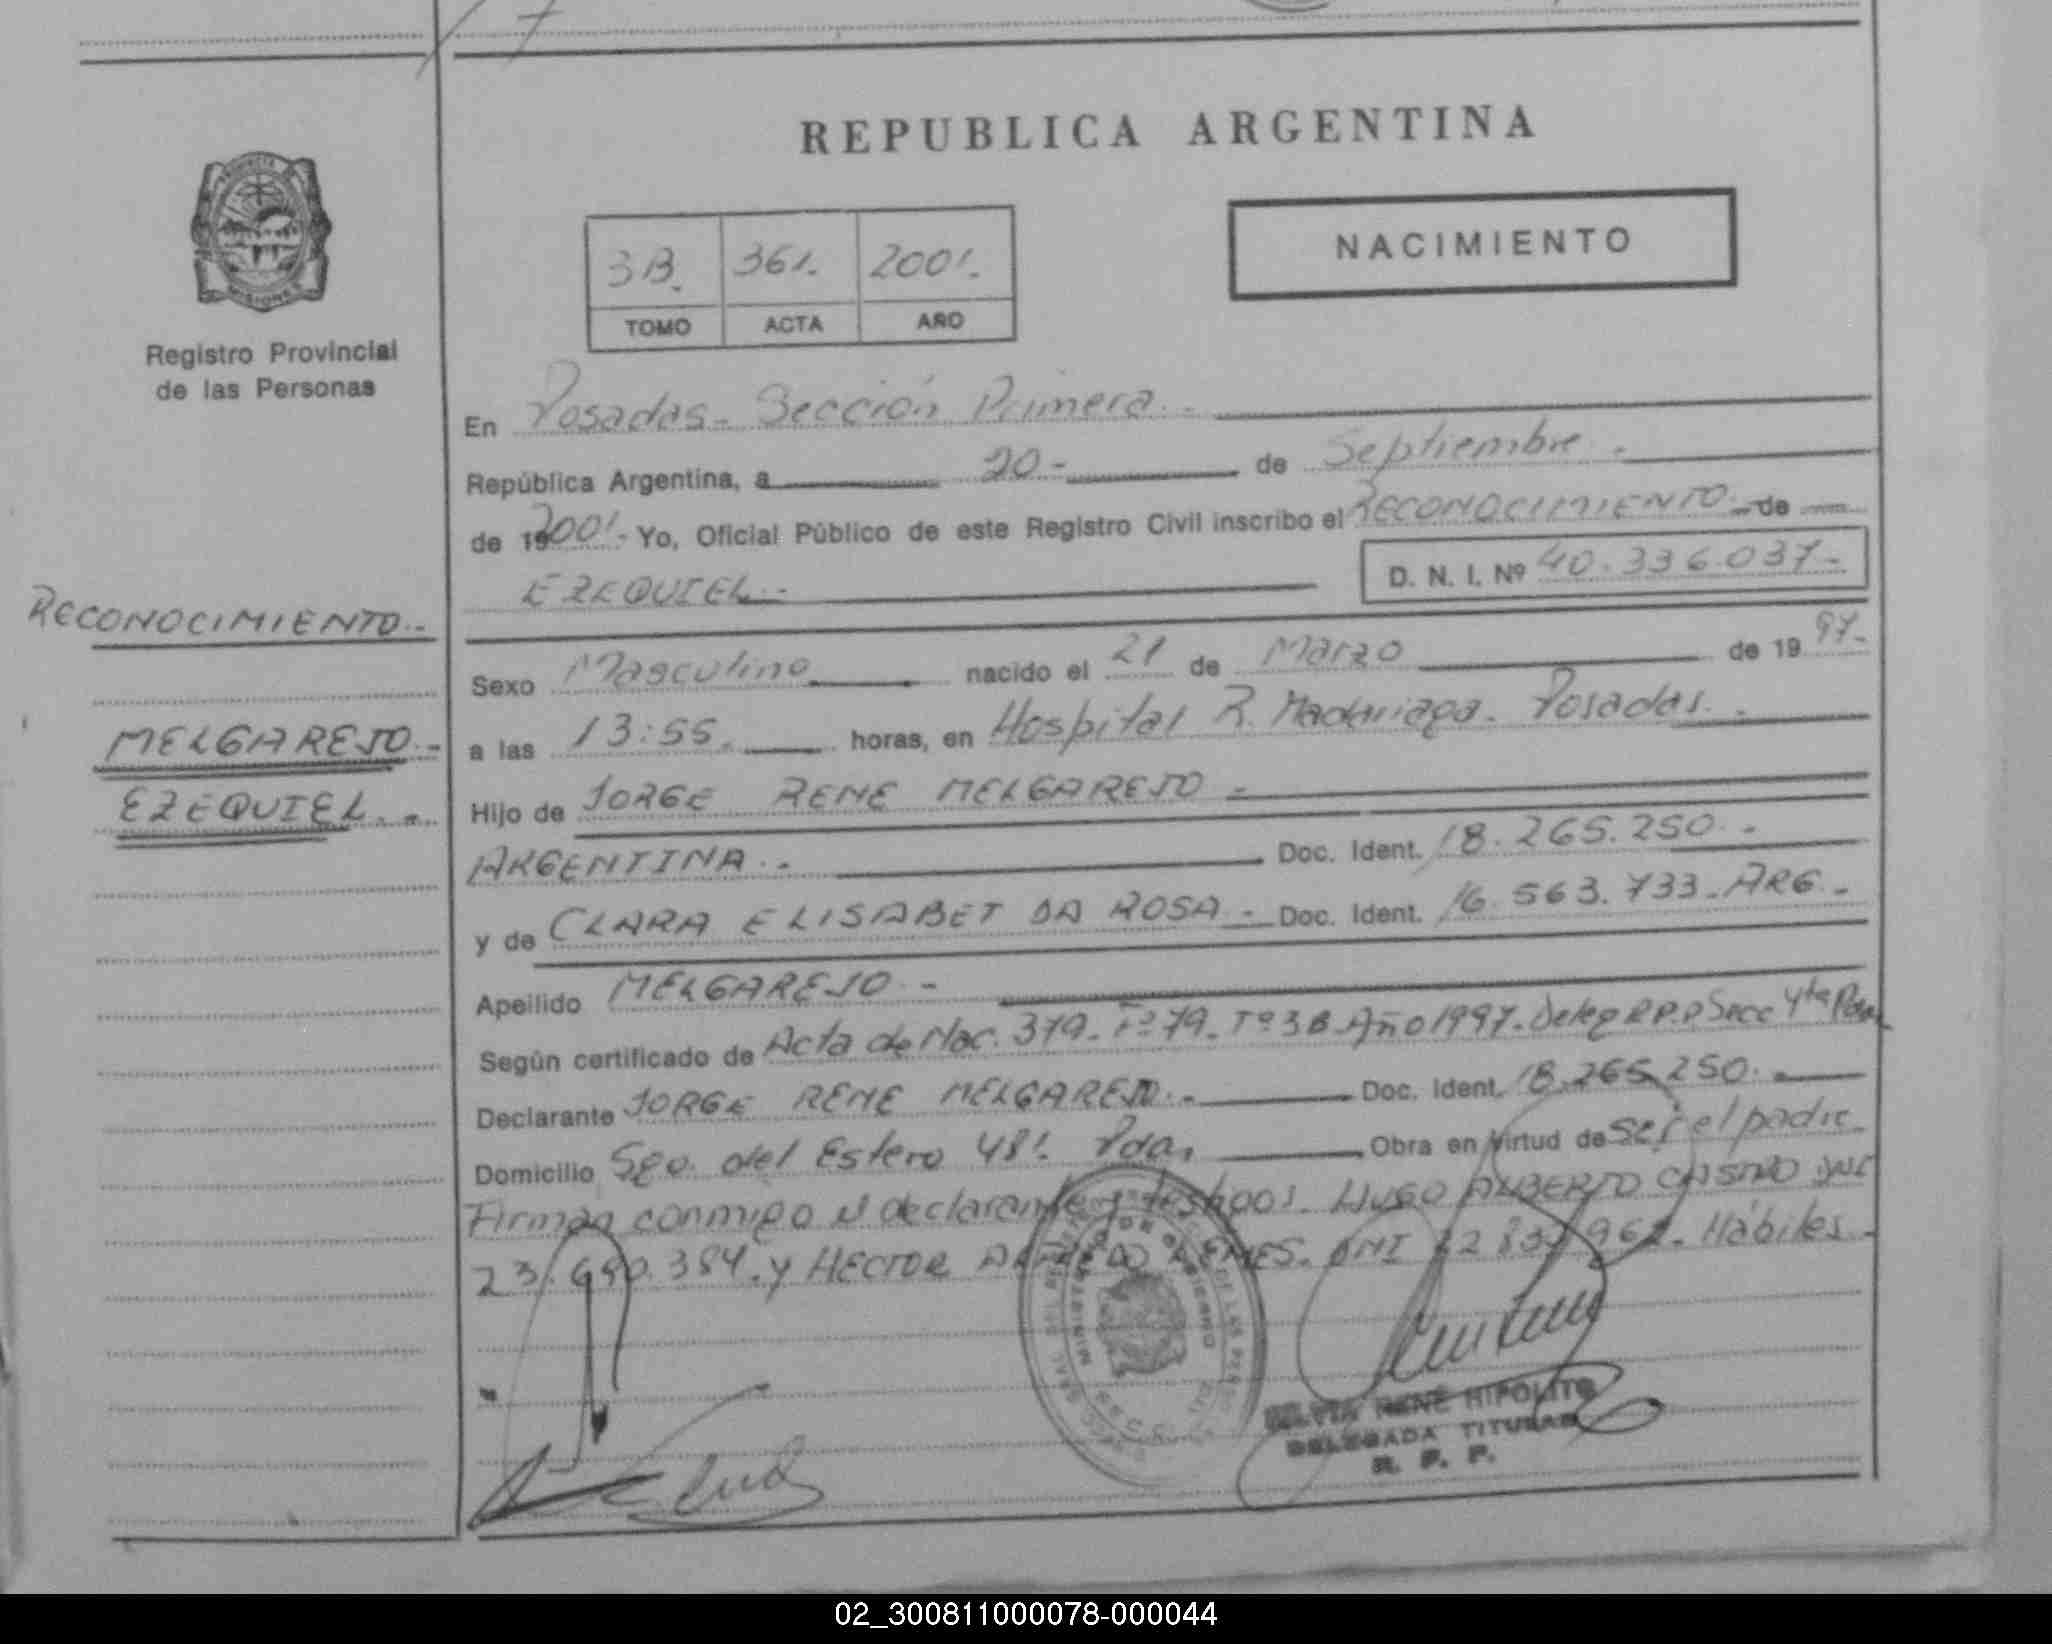 REPUBLICA ARGENTINA
PROVINCIA DE MISIONES
Registro Provincial
de las Personas
3B. 361. 2001.
TOMO ACTA AÑO
NACIMIENTO
En Posadas - Sección Primera. -
República Argentina, a 20 - de Septiembre. -
de 19 2001. - Yo, Oficial Público de este Registro Civil inscribo el RECONOCIMIENTO - de
EZEQUIEL. -
D. N. I. Nº 40.336.037 -
RECONOCIMIENTO. -
MELGAREJO. -
EZEQUIEL. -
Sexo Masculino nacido el 21 de Marzo de 19 97. -
a las 13:55. horas, en Hospital R. Madariaga. Posadas. -
Hijo de JORGE RENE MELGAREJO -
ARGENTINA. - Doc. Ident. 18.265.250. -
y de CLARA ELISABET DA ROSA - Doc. Ident. 16.563.733 - ARG. -
Apellido MELGAREJO. -
Según certificado de Acta de Nac. 379. Fº 79. Tº 3B. Año 1997. Deleg R.P.P Secc 4ta Pdas
Declarante JORGE RENE MELGAREJO. - Doc. Ident. 18.265.250. -
Domicilio Sgo. del Estero 481. Pdas Obra en virtud de ser el padre.
Firman conmigo el declarante y testigos. HUGO ALBERTO CASTRO DNI
23.690.384. y HECTOR LEMES. DNI Hábiles. -
RENE HIPOLITO
DELEGADA TITULAR
R. P. P.
02_300811000078-000044